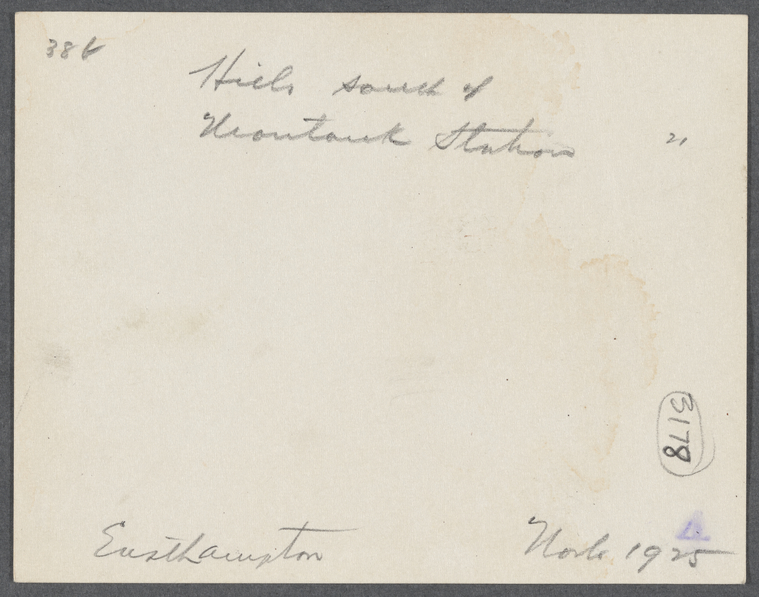 38
Hills south of
Montauk Station
21
3178
Easthampton
Nov. 1925